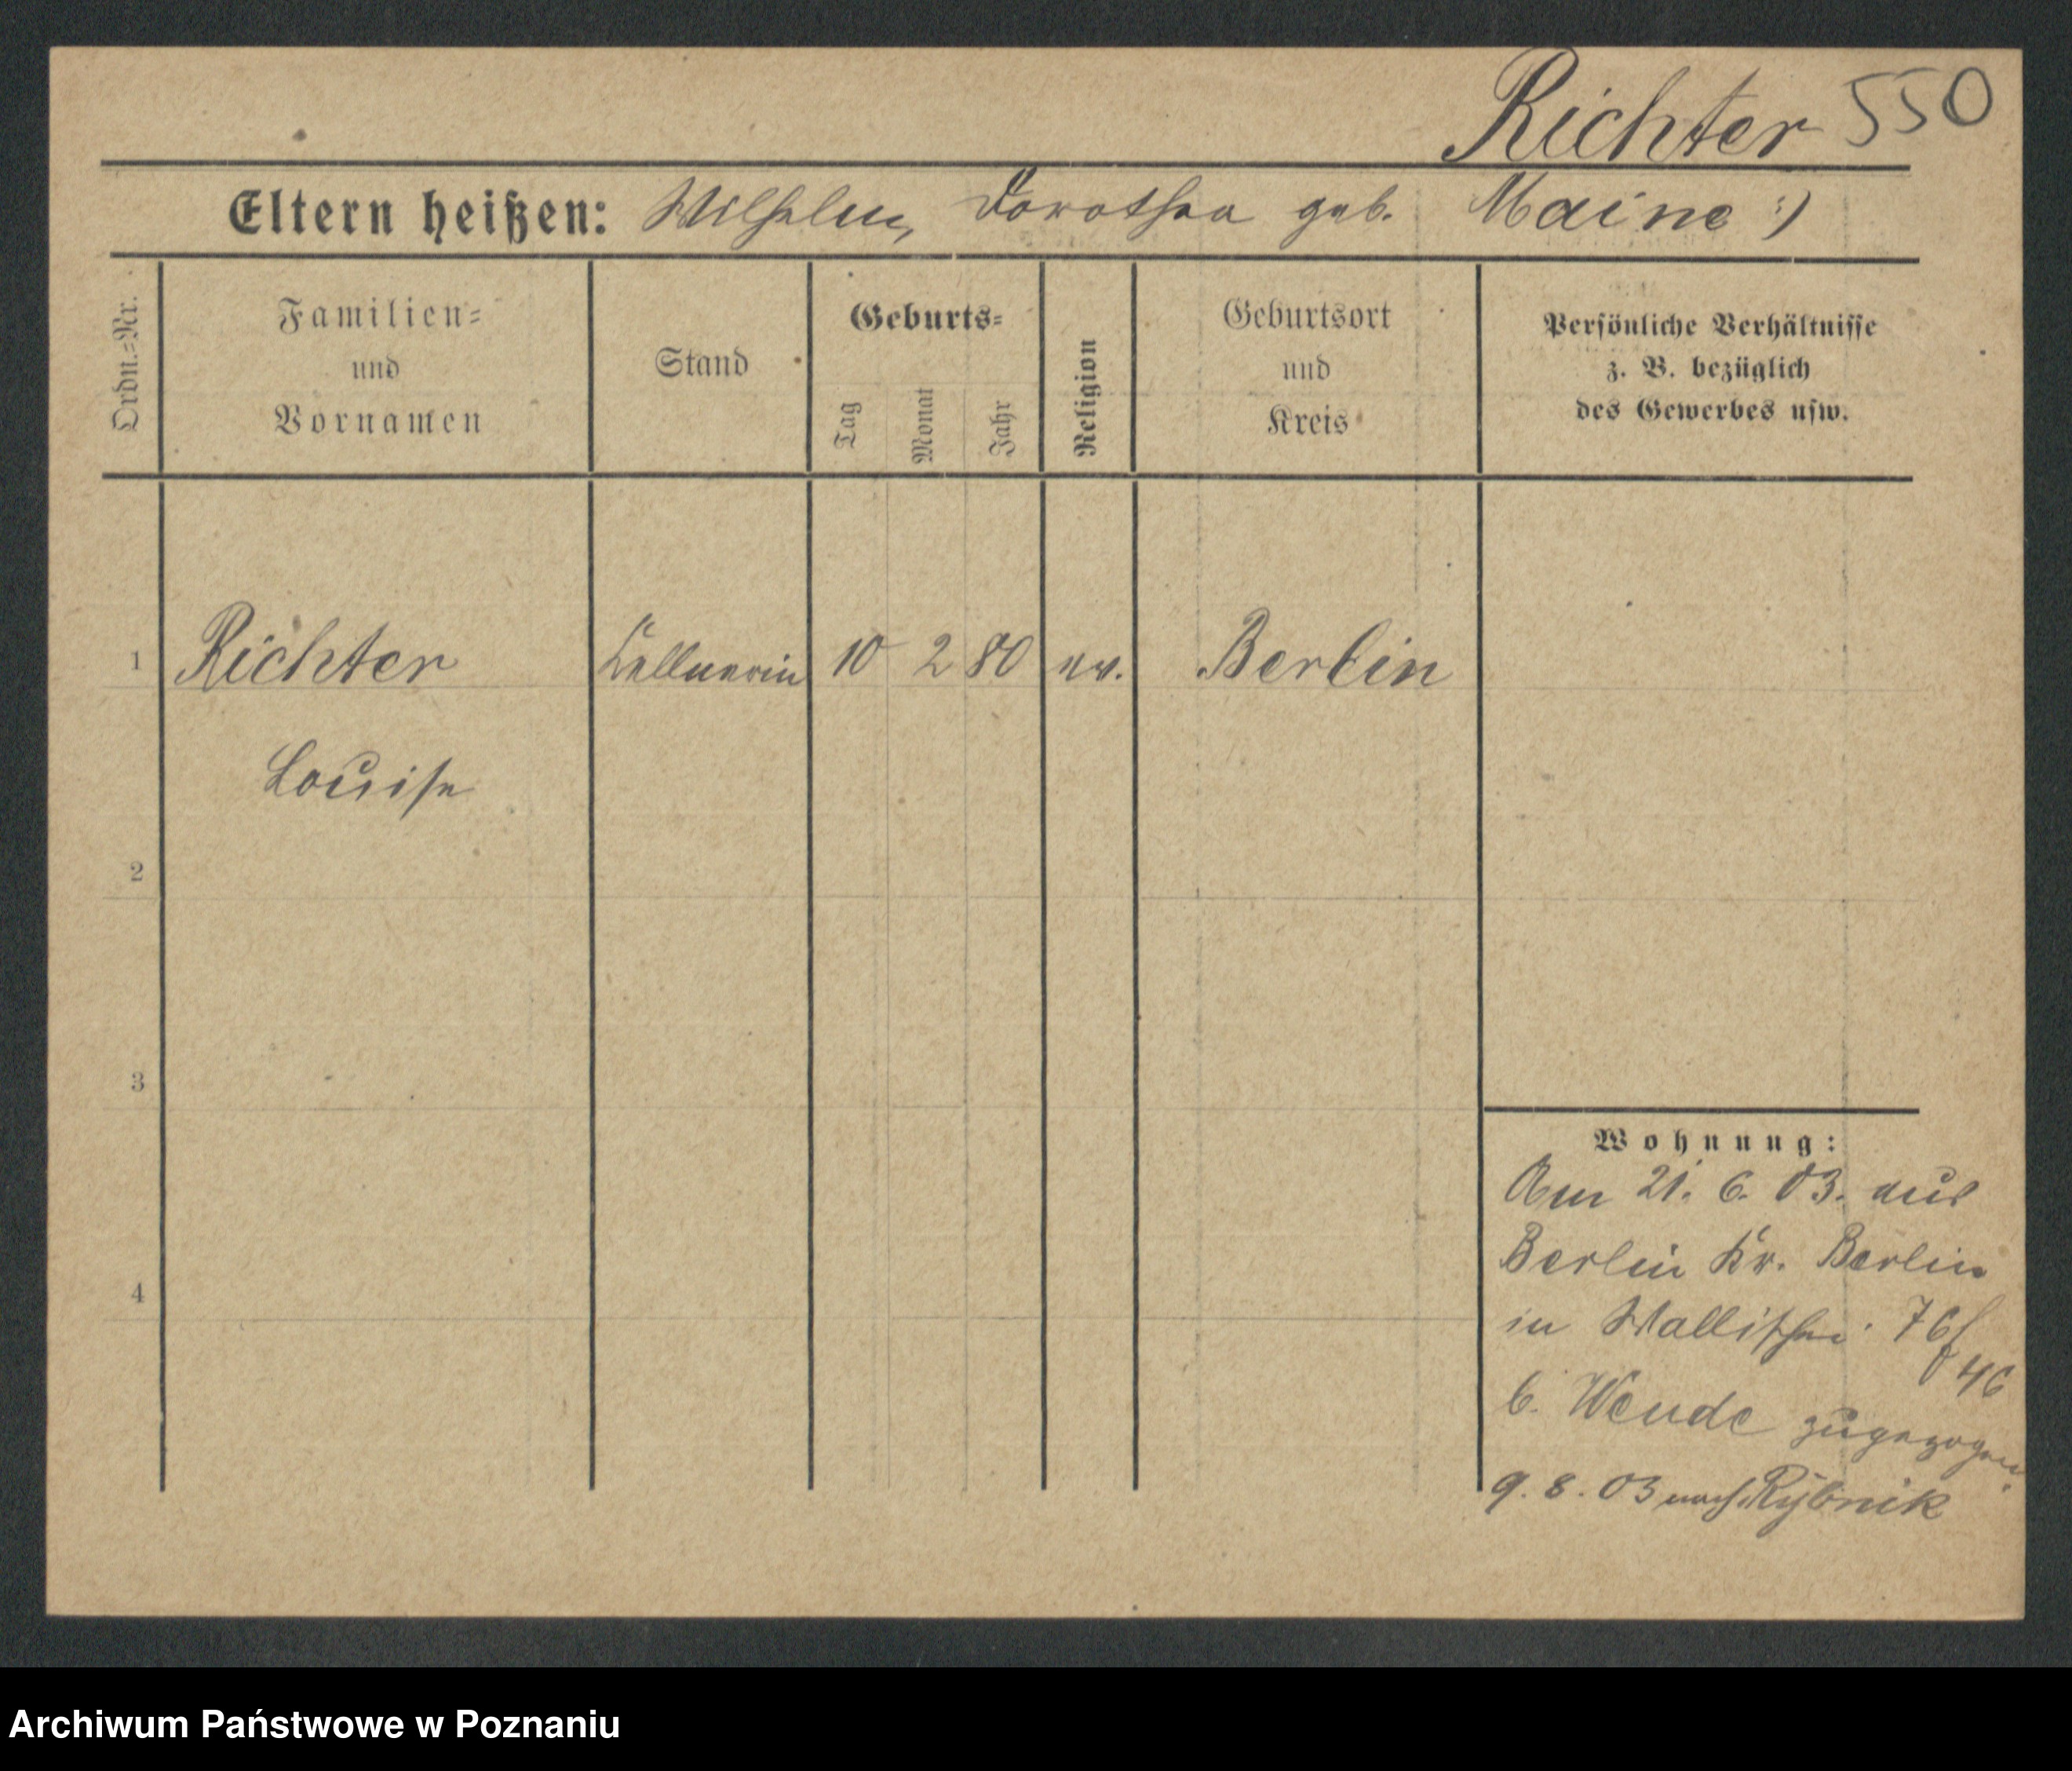 Richter 550
Eltern heißen: Wilhelm, Dorothea geb. Maine :)
Ordn.=Nr.
Familien=
und
Vornamen
Stand
Geburts=
Tag
Monat
Jahr
Religion
Geburtsort
und
Kreis
Persönliche Verhältnisse
z. B. bezüglich
des Gewerbes usw.
1 Richter Kellnerin 10 2 80 ev. Berlin
Louise
2
3
4
Wohnung:
Am 21. 6. 03. aus
Berlin Kr. Berlin
in Wallischei 76/
46
b. Wende zugezogen.
9. 8. 03 nach Rybnik
Archiwum Państwowe w Poznaniu